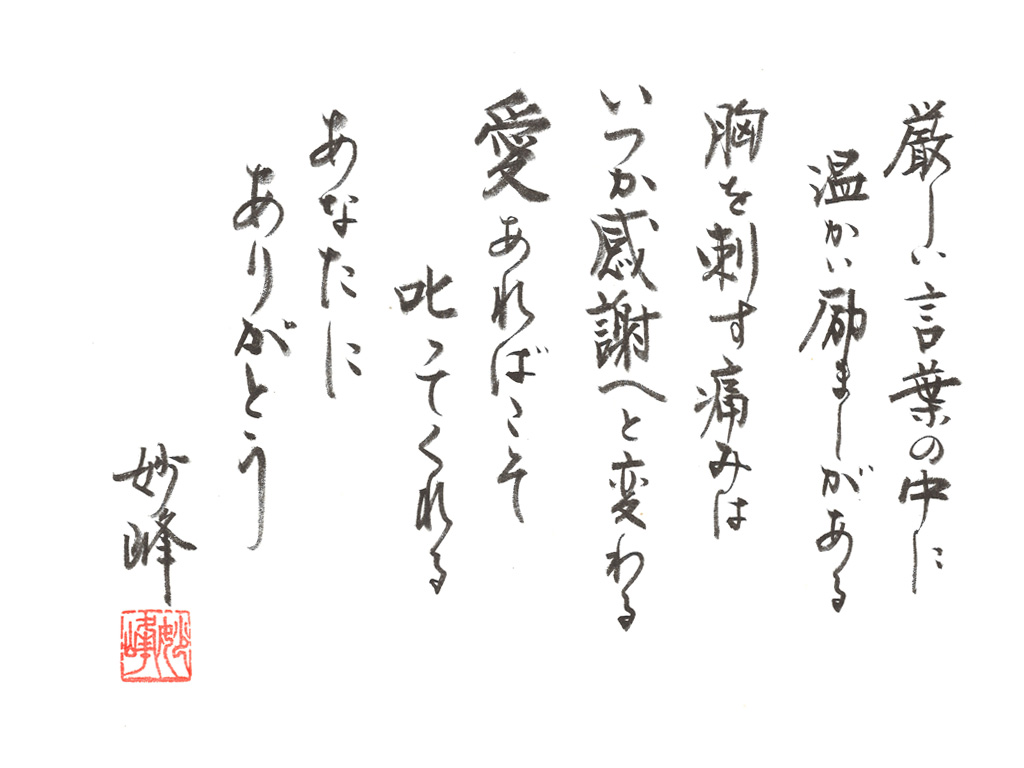 厳しい言葉の中に
温かい励ましがある
胸を刺す痛みは
いつか感謝へと変わる
愛あればこそ
叱ってくれる
あなたに
ありがとう
妙峰
妙峰